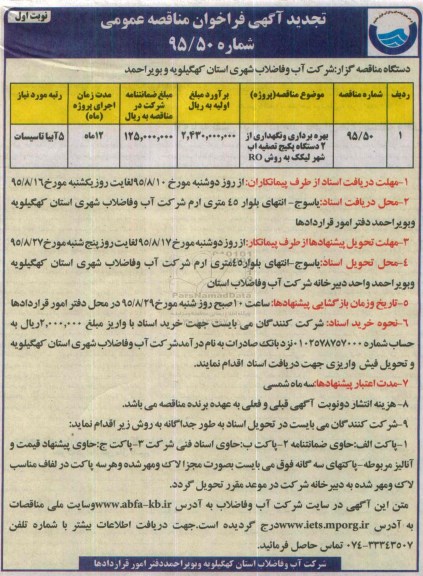 نوبت اول
تجدید آگهی فراخوان مناقصه عمومی
شماره ۹۵/۵۰
دستگاه مناقصه گزار:شرکت آب وفاضلاب شهری استان کهگیلویه وبویراحمد
ردیف | شماره مناقصه | موضوع مناقصه(پروژه) | برآورد مبلغ اولیه به ریال | مبلغ ضمانتنامه شرکت در مناقصه به ریال | مدت زمان اجرای پروژه (ماه) | رتبه مورد نیاز
۱ | ۹۵/۵۰ | بهره برداری ونگهداری از ۲ دستگاه پکیج تصفیه آب شهر لیکک به روش RO | ۲,۴۳۰,۰۰۰,۰۰۰ | ۱۲۵,۰۰۰,۰۰۰ | ۱۲ماه | ۵آبیا تاسیسات
۱-مهلت دریافت اسناد از طرف پیمانکاران:از روز دوشنبه مورخ ۹۵/۸/۱۰لغایت روز یکشنبه مورخ ۹۵/۸/۱۶
۲-محل دریافت اسناد:یاسوج-انتهای بلوار ۴۵ متری ارم شرکت آب وفاضلاب شهری استان کهگیلویه
وبویراحمد دفتر امور قراردادها
۳-مهلت تحویل پیشنهادها از طرف پیمانکار:از روز دوشنبه مورخ ۹۵/۸/۱۷لغایت روز پنج شنبه مورخ ۹۵/۸/۲۷
۴-محل تحویل اسناد:یاسوج-انتهای بلوار۴۵متری ارم شرکت آب وفاضلاب شهری استان کهگیلویه
وبویراحمد واحد دبیرخانه شرکت آب وفاضلاب استان
۵-تاریخ وزمان بازگشایی پیشنهادها:ساعت ۱۰صبح روز شنبه مورخ ۹۵/۸/۲۹ در محل دفتر امور قراردادها
۶-نحوه خرید اسناد: شرکت کنندگان می بایست جهت خرید اسناد با واریز مبلغ ۲,۰۰۰,۰۰۰ریال به
حساب شماره ۰۱۰۲۵۷۸۷۵۷۰۰۰نزد بانک صادرات به نام درآمد شرکت آب وفاضلاب شهری استان کهگیلویه
و تحویل فیش واریزی جهت دریافت اسناد اقدام نمایند.
۷-مدت اعتبار پیشنهادها:سه ماه شمسی
۸-هزینه انتشار دونوبت آگهی قبلی و فعلی به عهده برنده مناقصه می باشد.
۹-شرکت کنندگان می بایست در تحویل اسناد به طور جداگانه به روش زیر اقدام نمایند:
۱-پاکت الف:حاوی ضمانتنامه ۲-پاکت ب:حاوی اسناد فنی شرکت ۳-پاکت ج:حاوی پیشنهاد قیمت و
آنالیز مربوطه-پاکتهای سه گانه فوق می بایست بصورت مجزا لاک ومهر شده وهر سه پاکت در لفاف مناسب
لاک ومهر شده به دبیرخانه شرکت در موعد مقرر تحویل گردد.
متن این آگهی در سایت شرکت آب وفاضلاب به آدرس www.abfa-kb.ir وسایت ملی مناقصات
به آدرس www.iets.mporg.ir درج گردیده است.جهت دریافت اطلاعات بیشتر با شماره تلفن
۰۷۴-۳۳۳۴۳۵۰۷ تماس حاصل فرمائید.
شرکت آب وفاضلاب استان کهگیلویه وبویراحمددفتر امور قراردادها